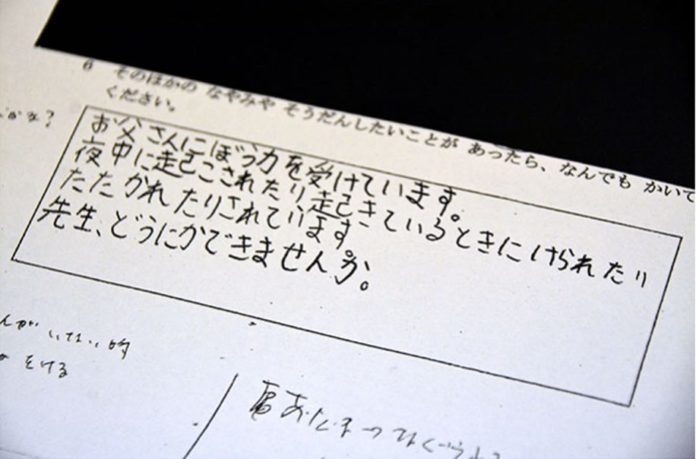 6 そのほかの なやみや そうだんしたいことが あったら、なんでも かいて
ください。
お父さんにぼう力を受けています。
夜中に起こされたり起きているときにけられたり
たたかれたりされています。
先生、どうにかできませんか。